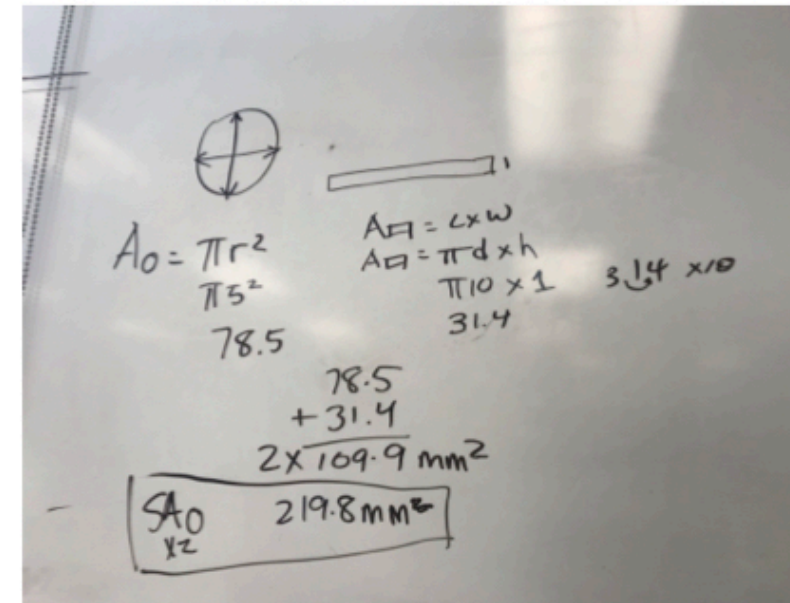 1
A○ = πr²
π5²
78.5
A▭ = L×W
A▭ = πd×h
π10 × 1
31.4
3.14 ×10
78.5
+ 31.4
2× 109.9 mm²
SA○ 219.8mm²
×2